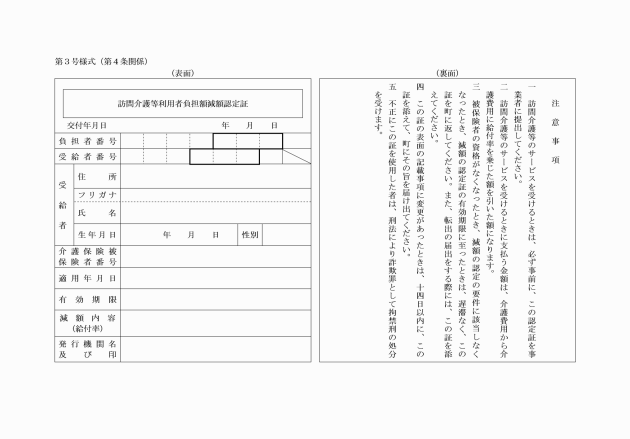 第３号様式（第４条関係）
（表面）
訪問介護等利用者負担額減額認定証
交付年月日　　年　月　日
負担者番号
受給者番号
受給者
住所
フリガナ
氏名
生年月日　　年　月　日　性別
介護保険被
保険者番号
適用年月日
有効期限
減額内容
（給付率）
発行機関名
及び印
（裏面）
注意事項
一　訪問介護等のサービスを受けるときは、必ず事前に、この認定証を事
業者に提出してください。
二　訪問介護等のサービスを受けるときに支払う金額は、介護費用から介
護費用に給付率を乗じた額を引いた額になります。
三　被保険者の資格がなくなったとき、減額の認定の要件に該当しなく
なったとき、減額の認定証の有効期限に至ったときは、遅滞なく、この
証を町に返してください。また、転出の届出をする際には、この証を添
えてください。
四　この証の表面の記載事項に変更があったときは、十四日以内に、この
証を添えて、町にその旨を届け出てください。
五　不正にこの証を使用した者は、刑法により詐欺罪として拘禁刑の処分
を受けます。